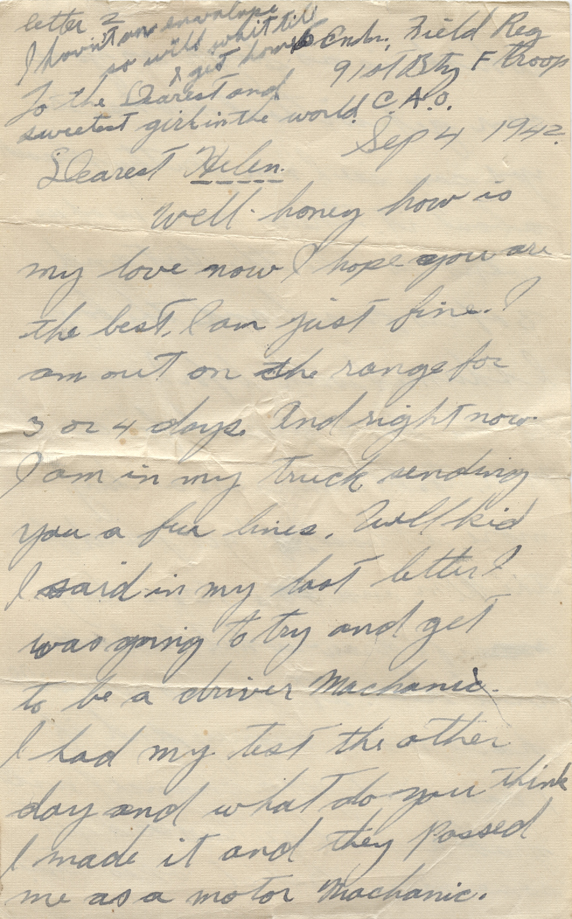 letter 2
I havint an envelope
so will whit till
I get home
6 Cndn. Field Reg
91st Bty F troop
C.A.O.
To the Dearest and
sweetest girl in the world
Sep 4 1942.
Dearest Helen.
Well honey how is
my love now I hope you are
the best. I am just fine. I
am out on the range for
3 or 4 days. And right now
I am in my truck sending
you a fue lines. Well kid
I said in my last letter I
was going to try and get
to be a driver Machanic.
I had my test the other
day and what do you think
I made it and they passed
me as a motor Machanic.